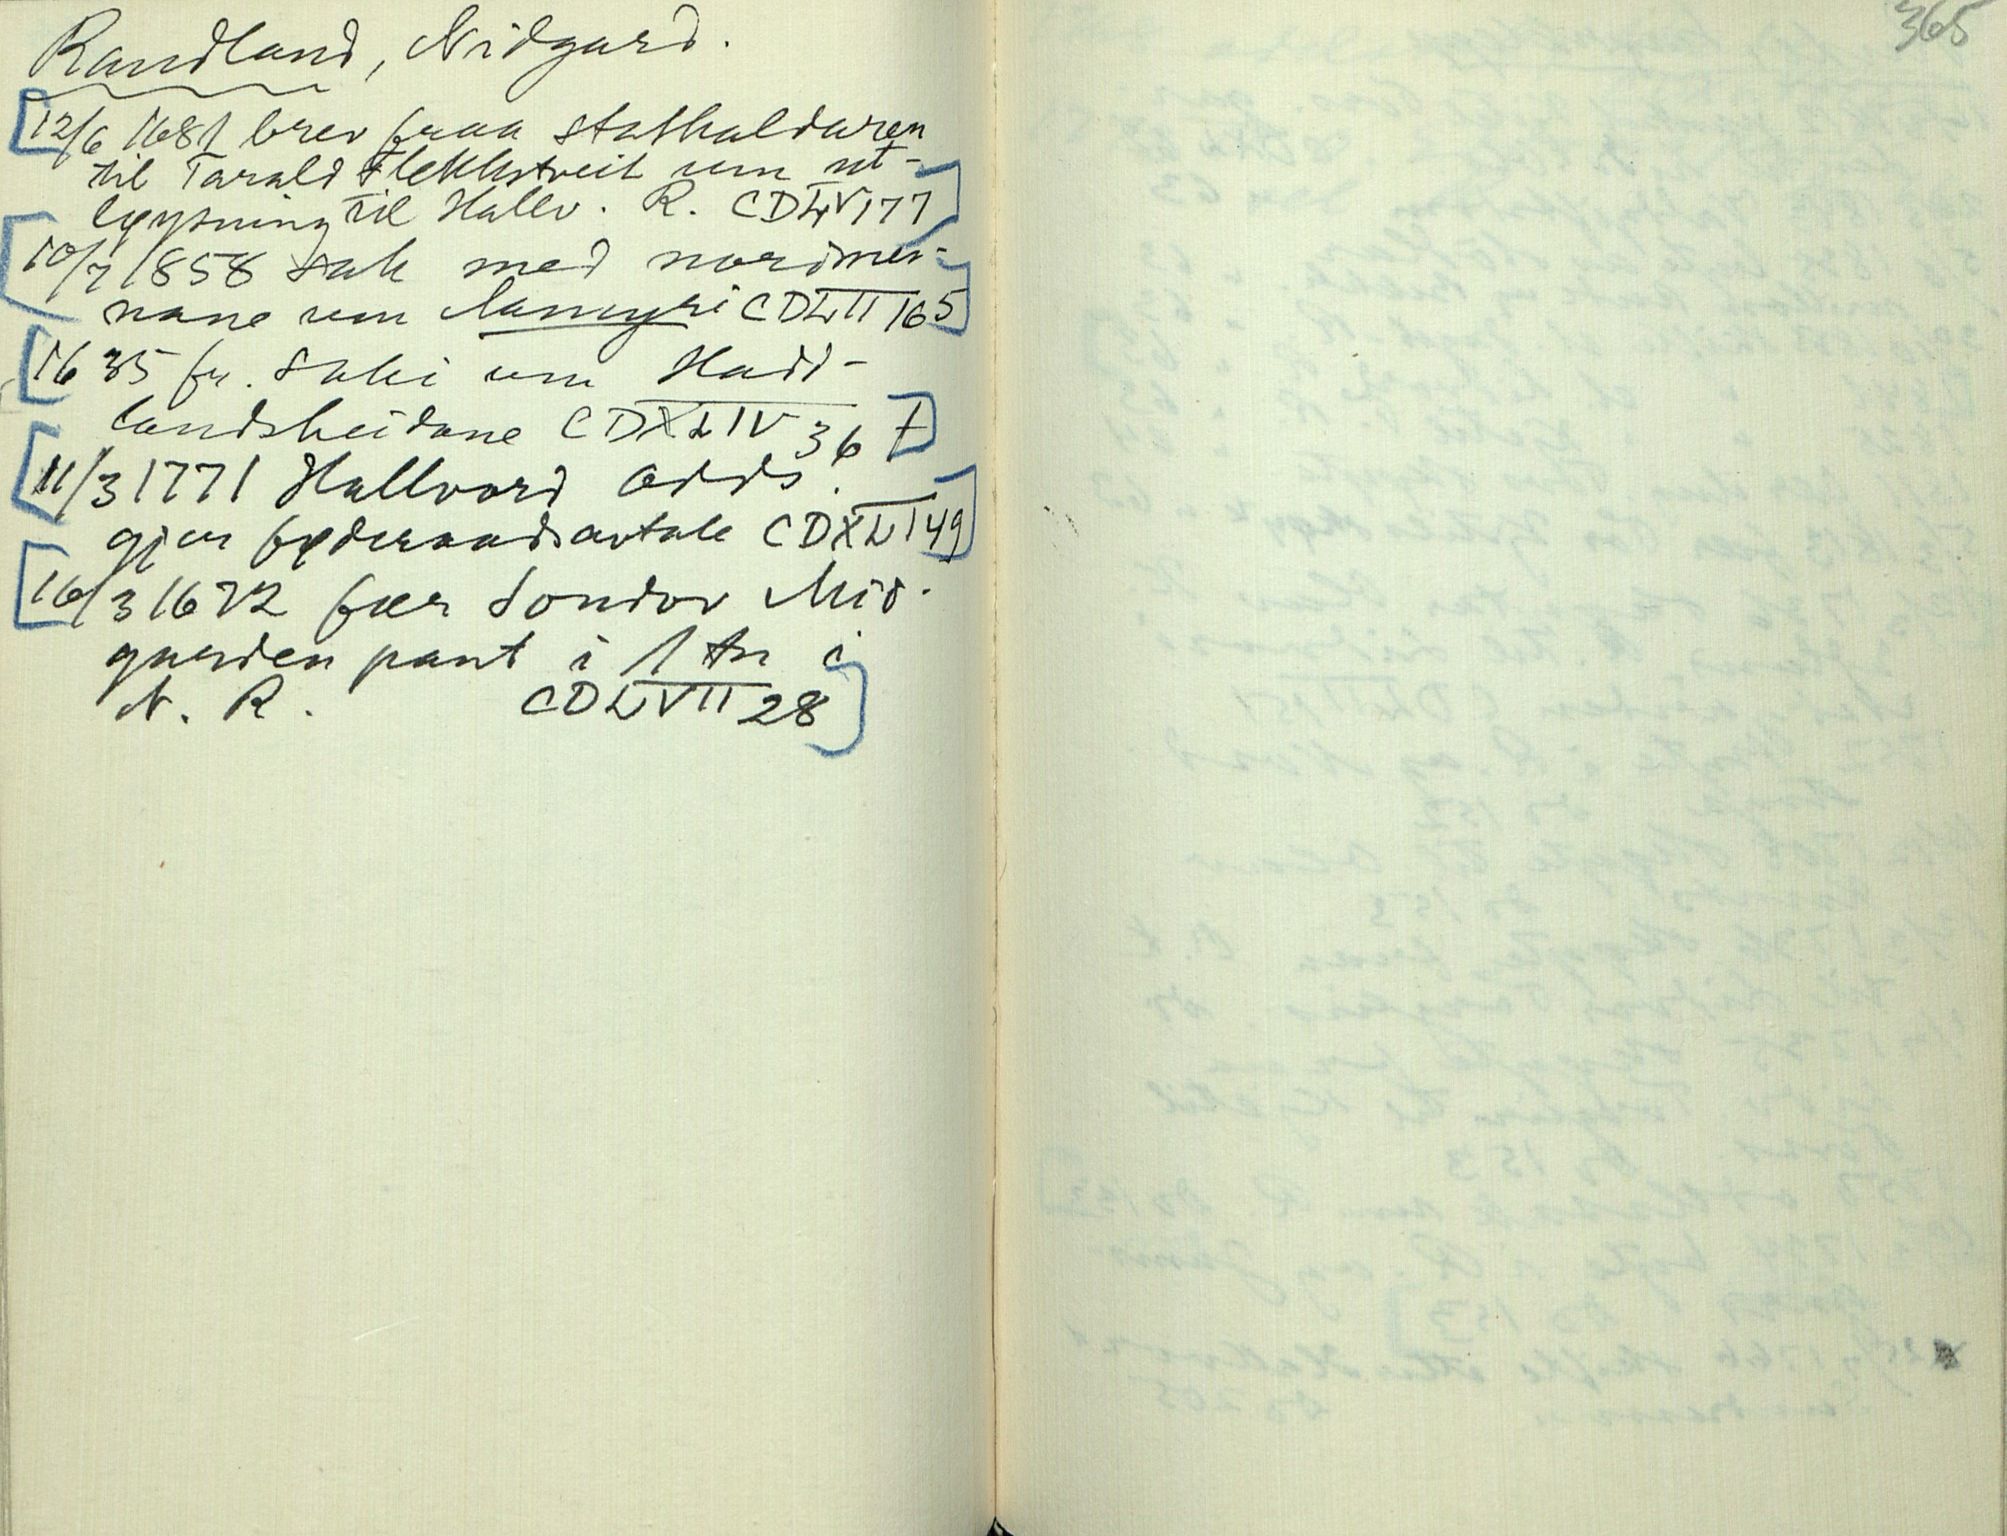 Raudland, Nidgard.
[12/6 1681 brev fraa stathaldaren
til Tarald Flekkstveit um ut-
løysning til Hallv. R. CDLV 177]
[10/7 1858 sak med nordmei-
nane um CDLII 165]
[1635 fr. Saki um Hadd-
landsheidane CDXLIV 36 f]
[11/3 1771 Hallvord Odds.
gjer føderaadsavtale CDXLI 49]
[16/3 1672 fær Sondov Mid-
garden pant i 1 tn i
N. R. CDLVII 28]
365